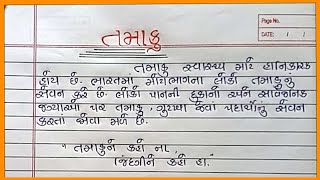 Page No.
Date: / /
તમાકુ
તમાકુ સ્વાસ્થ્ય માટે હાનિકારક
હોય છે. ભારતમાં મોટાભાગના લોકો તમાકુનું
સેવન કરે છે. લોકો પાનની દુકાનો અને સાર્વજનિક
જગ્યાઓ પર તમાકુ, ગુટખા જેવા પદાર્થોનું સેવન
કરતાં જોવા મળે છે.
"તમાકુને કહો ના,
જિંદગીને કહો હા."